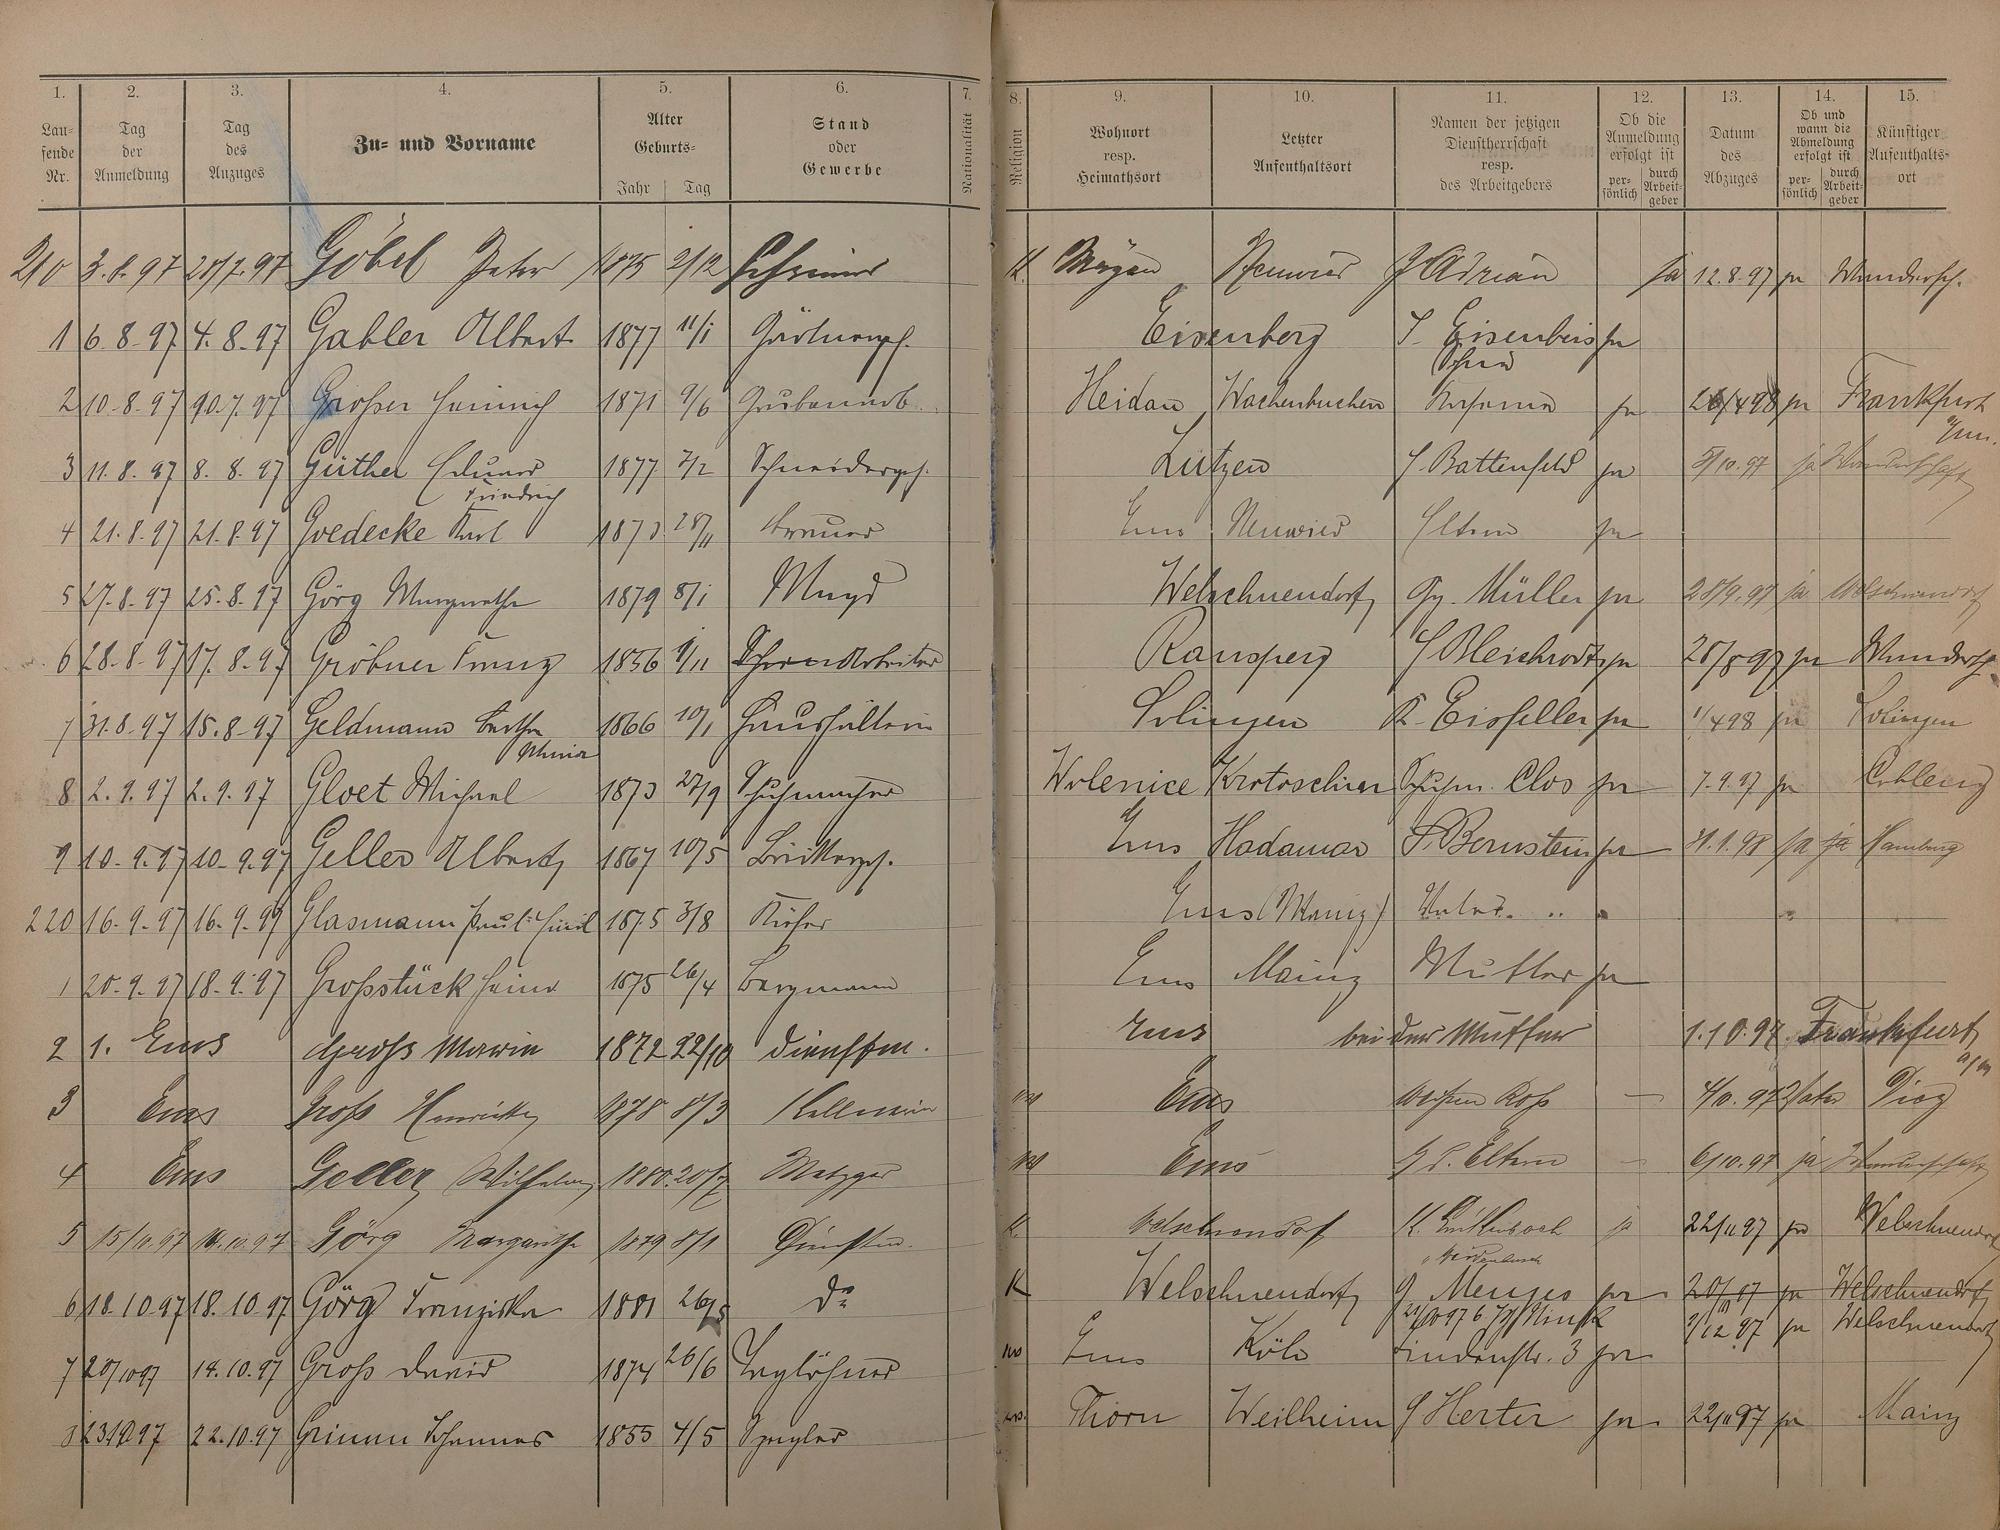 1. 2. 3. 4. 5. 6. 7. 8. 9. 10. 11. 12. 13. 14. 15.
Lau-
fende
Nr.
Tag
der
Anmeldung
Tag
des
Anzuges
Zu- und Vorname
Alter
Geburts-
Jahr Tag
Stand
oder
Gewerbe
Nationalität
Religion
Wohnort
resp.
Heimathsort
Letzter
Aufenthaltsort
Namen der jetzigen
Dienstherrschaft
resp.
des Arbeitgebers
Ob die
Anmeldung
erfolgt ist
per-
sönlich
durch
Arbeit-
geber
Datum
des
Abzuges
Ob und
wann die
Abmeldung
erfolgt ist
per-
sönlich
durch
Arbeit-
geber
Künftiger
Aufenthalts-
ort
210 3.8.97 28/7.97 Göbel Peter 1875 2/12 Schreiner K. Neuwied J Adrian ja 12.8.97 ja Wandersch.
1 6.8.97 4.8.97 Gabler Albert 1877 11/1 Gärtnergeh. Eisenberg J. Eisenbeis ja
2 10.8.97 Großer Heinrich 1871 9/6 Grubenarb. Heidau Wachenbuchen ja ja Frankfurt
3 11.8.97 8.8.97 Güther Eduard 1877 7/2 Schneidergeh. Lützen J. Battenfeld ja 5/10.97 ja Wanderschaft
Friedrich
4 21.8.97 21.8.97 Goedecke Karl 1873 28/11 Ems Neuwied Eltern ja
5 27.8.97 25.8.97 Görg Margarethe 1879 8/1 Magd Welschneudorf Gg. Müller ja 28/9.97 ja Welschneudorf
6 28.8.97 17.8.97 Gröbner Franz 1856 1/11 Arbeiter Ransperg J Bleichrodt ja 28/8 97 ja Wandersch.
7 31.8.97 15.8.97 Geldmann Bertha 1866 10/1 Haushälterin Solingen K. Eisfeller ja 1/4 98 ja Solingen
Maria
8 2.9.97 2.9.97 Gloet Michael 1873 27/9 Schuhmacher Wolenice Krotoschin Schuhm. Clos ja 7.9.97 ja Coblenz
9 10.9.97 10.9.97 Geller Albert 1867 10/5 Ems Hadamar S. Bernstein ja 31.1.98 ja ja Hamburg
220 16.9.97 16.9.97 Glasmann Paul Emil 1875 3/8 Küfer Ems (Mainz) Vater
1 20.9.97 18.9.97 Großstück Heinr. 1875 26/4 Bergmann Ems Mainz Mutter ja
2 1. Ems Groß Maria 1872 22/10 Dienstm. Ems bei der Mutter 1.10.97 Frankfurt
a/M
3 Ems Groß 1878 8/3 Kellnerin Ems Weißen Roß — 4/10.97 Vater Diez
4 Ems Geller Wilhelm 1880 20/7 Metzger Ems b d. Eltern — 6/10.97 ja Wanderschaft
5 15/10.97 Görg Margarethe 1879 8/1 Dienstm. K. Welschneudorf ja 22/11 97 ja Welschneudorf
6 18.10.97 18.10.97 Görg Franziska 1881 26/5 Do K Welschneudorf J Menges ja ja Welschneudorf
1/12 97 ja Welschneudorf
7 20/10 97 14.10.97 Groß David 1874 26/6 Taglöhner Ems Köln Lindenstr. 3 ja
8 23/10 97 22.10.97 Grimm Johannes 1855 4/5 Thorn Weilheim J Herter ja 22/11 97 ja Mainz